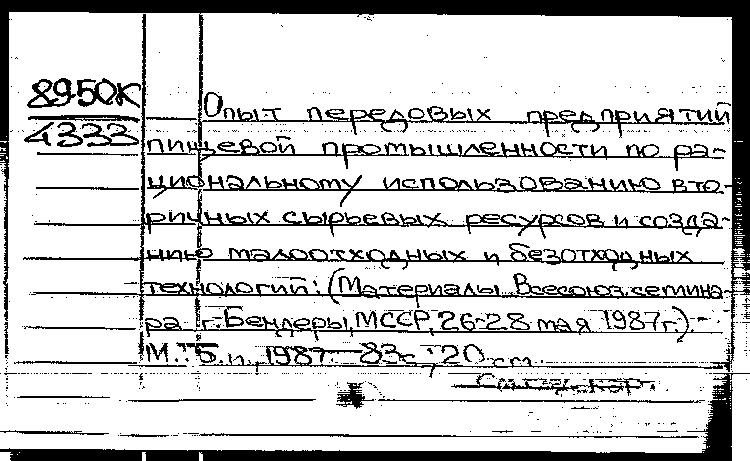 8950К
4333
Опыт передовых предприятий
пищевой промышленности по ра-
циональному использованию вто-
ричных сырьевых ресурсов и созда-
нию малоотходных и безотходных
технологий: (Материалы Всесоюз. семина-
ра г. Бендеры, МССР, 26-28 мая 1987г.).-
М.: Б.и., 1987.- 83с.; 20 см.